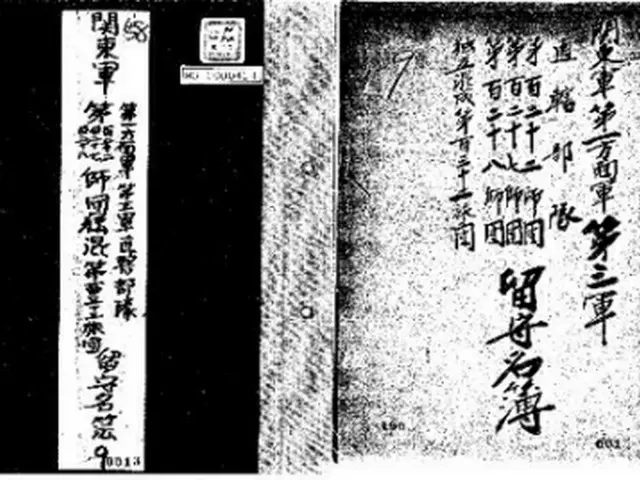 関東軍第一方面軍第三軍
直轄部隊
第百二十二師団
第百二十七師団
第百二十八師団
独立混成第百三十二旅団
留守名簿
19
190
001
68
関東軍
第一方面軍第三軍直轄部隊
師団独混第
旅団
留守名簿
9
0013